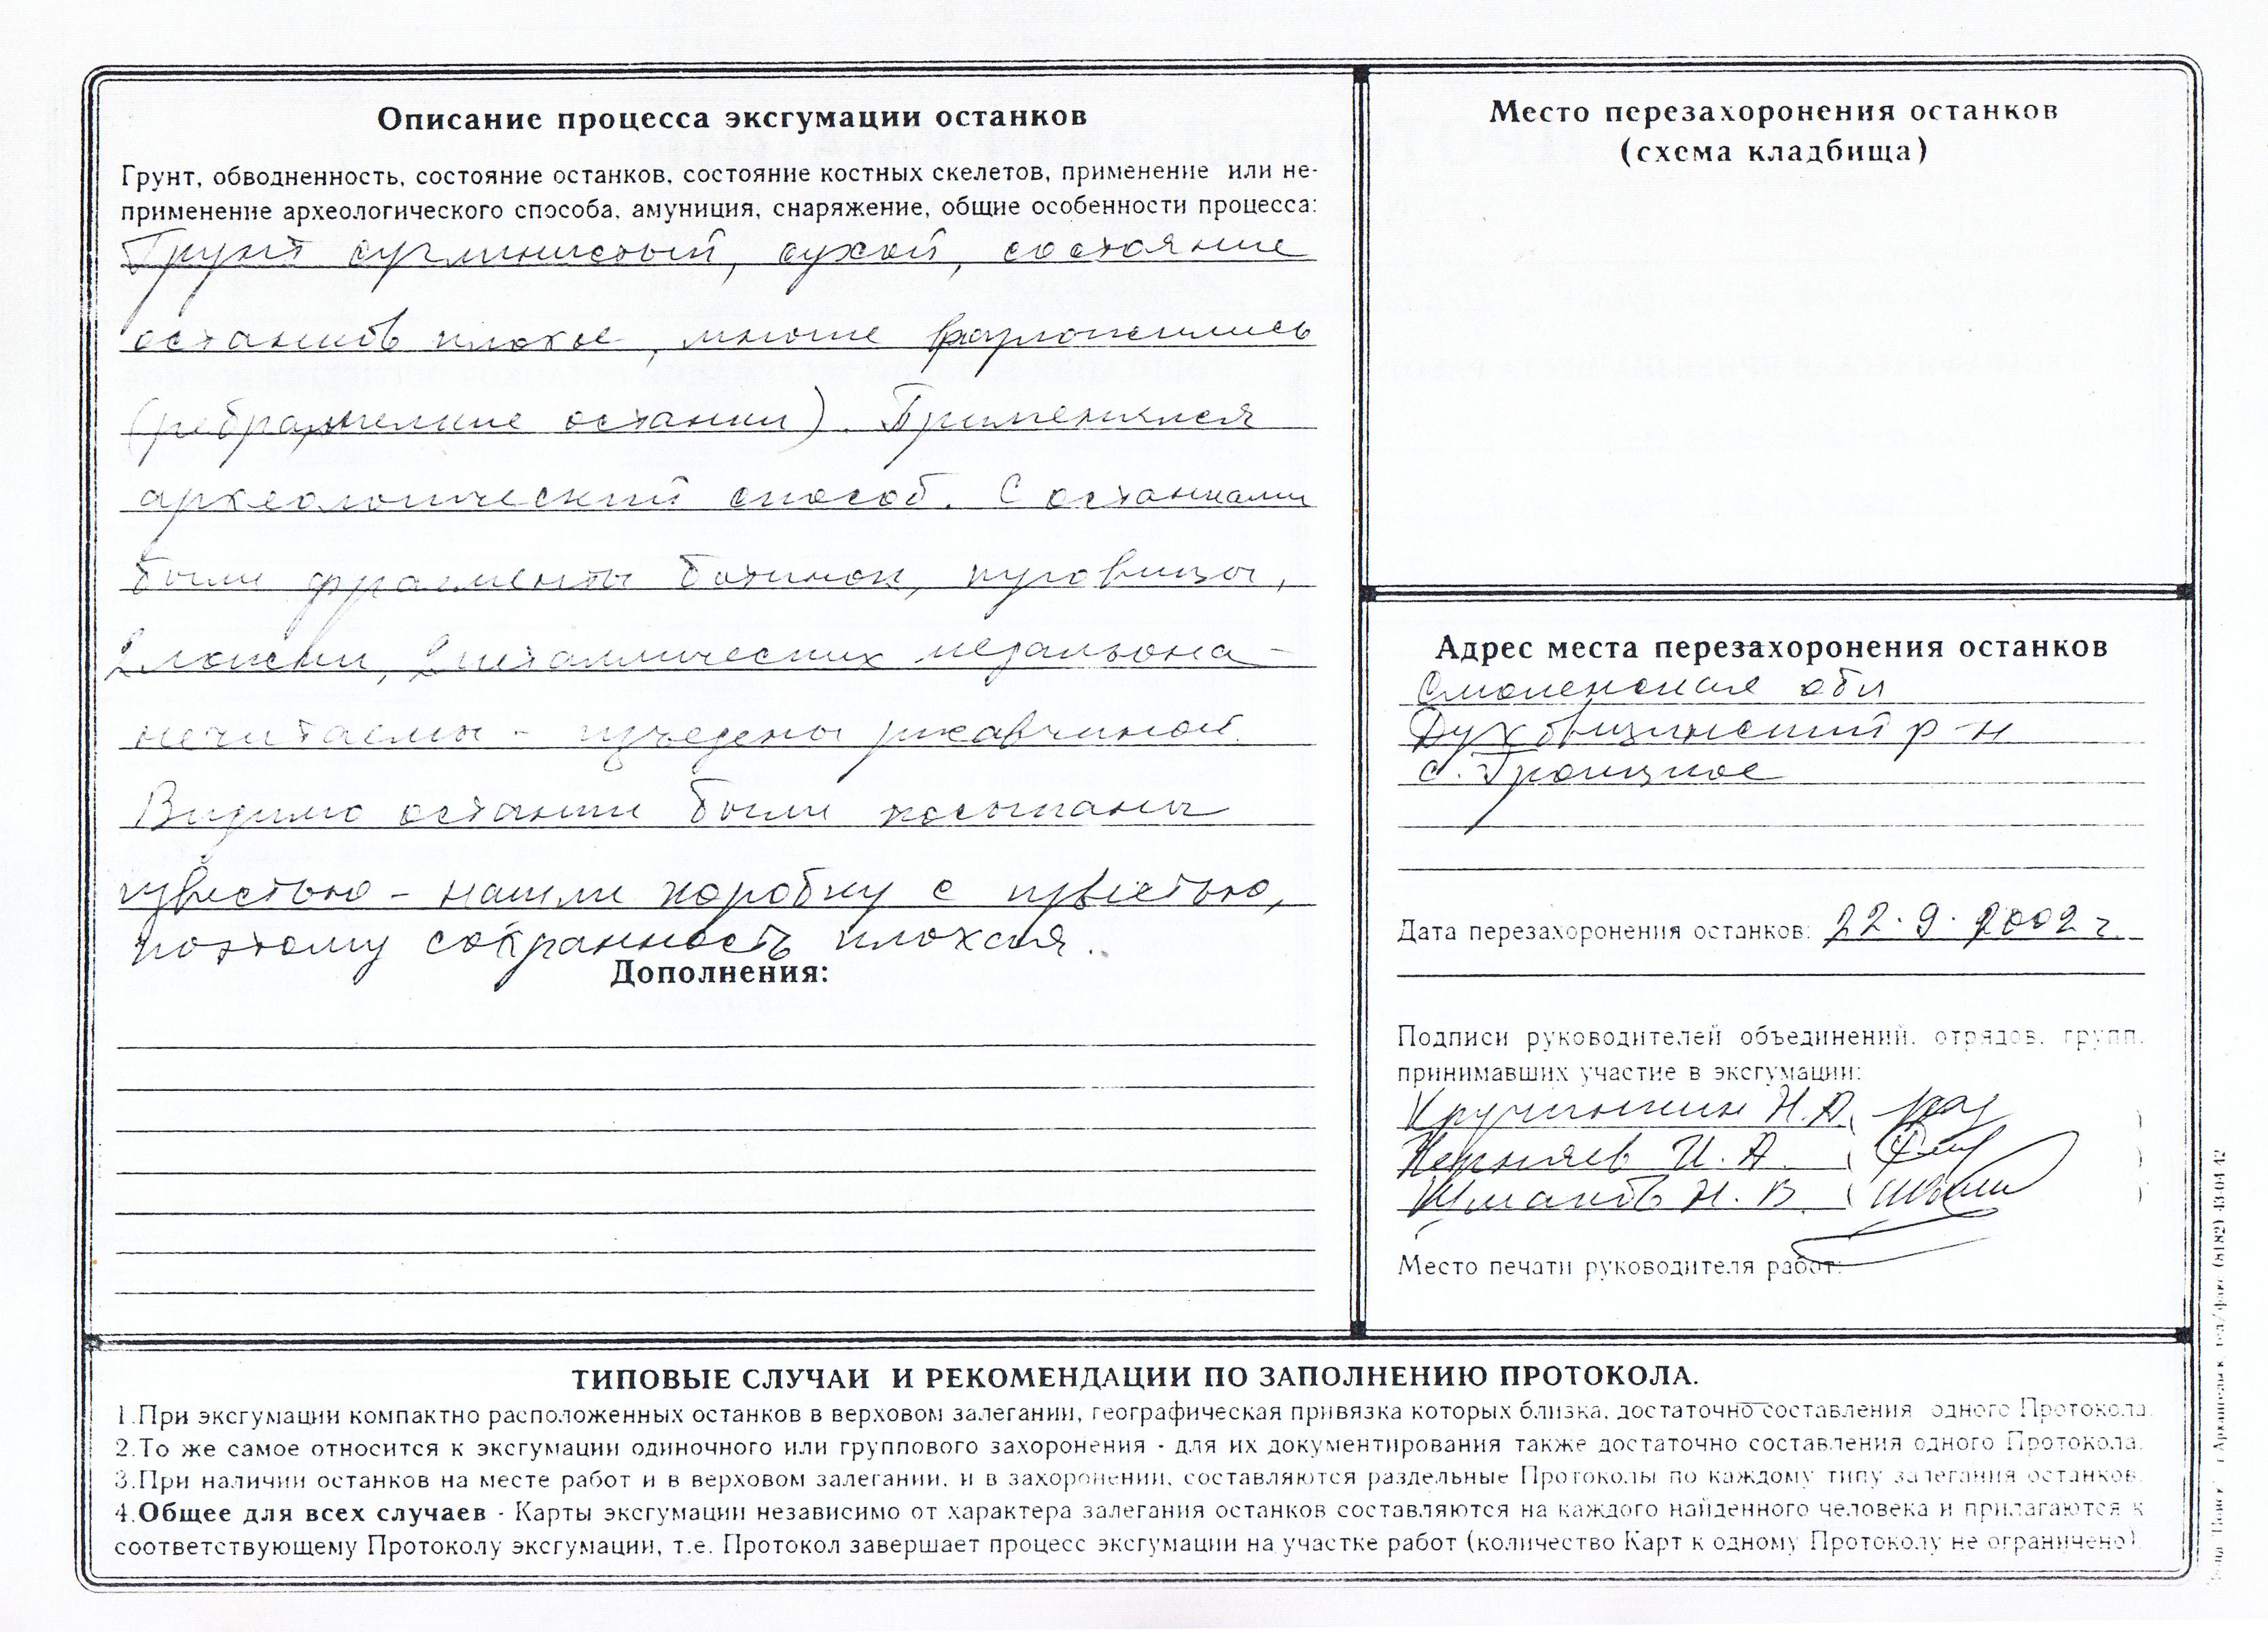 Описание процесса эксгумации останков
Грунт, обводненность, состояние останков, состояние костных скелетов, применение или не-
применение археологического способа, амуниция, снаряжение, общие особенности процесса:
Грунт суглинистый, сухой, состояние
останков плохое, многие разложились
(ребра, мелкие останки). Применялся
археологический способ. С останками
были фрагменты ботинок, пуговицы,
2 ложки, 2 металлических медальона -
нечитаемы - изъедены ржавчиной.
Видимо останки были посыпаны
известью - нашли коробку с известью,
поэтому сохранность плохая.
Дополнения:
Место перезахоронения останков
(схема кладбища)
Адрес места перезахоронения останков
Смоленская обл
Духовщинский р-н
с. Троицкое
Дата перезахоронения останков: 22.9.2002 г.
Подписи руководителей объединений, отрядов, групп,
принимавших участие в эксгумации:
Кручинкин Н.А. ( )
И. А. ( )
Н. В. ( )
Место печати руководителя работ:
ТИПОВЫЕ СЛУЧАИ И РЕКОМЕНДАЦИИ ПО ЗАПОЛНЕНИЮ ПРОТОКОЛА.
1.При эксгумации компактно расположенных останков в верховом залегании, географическая привязка которых близка, достаточно составления одного Протокола.
2.То же самое относится к эксгумации одиночного или группового захоронения - для их документирования также достаточно составления одного Протокола.
3.При наличии останков на месте работ и в верховом залегании, и в захоронении, составляются раздельные Протоколы по каждому типу залегания останков.
4.Общее для всех случаев - Карты эксгумации независимо от характера залегания останков составляются на каждого найденного человека и прилагаются к
соответствующему Протоколу эксгумации, т.е. Протокол завершает процесс эксгумации на участке работ (количество Карт к одному Протоколу не ограничено).
г.Архангельск, тел/факс (8182) 43-04-42